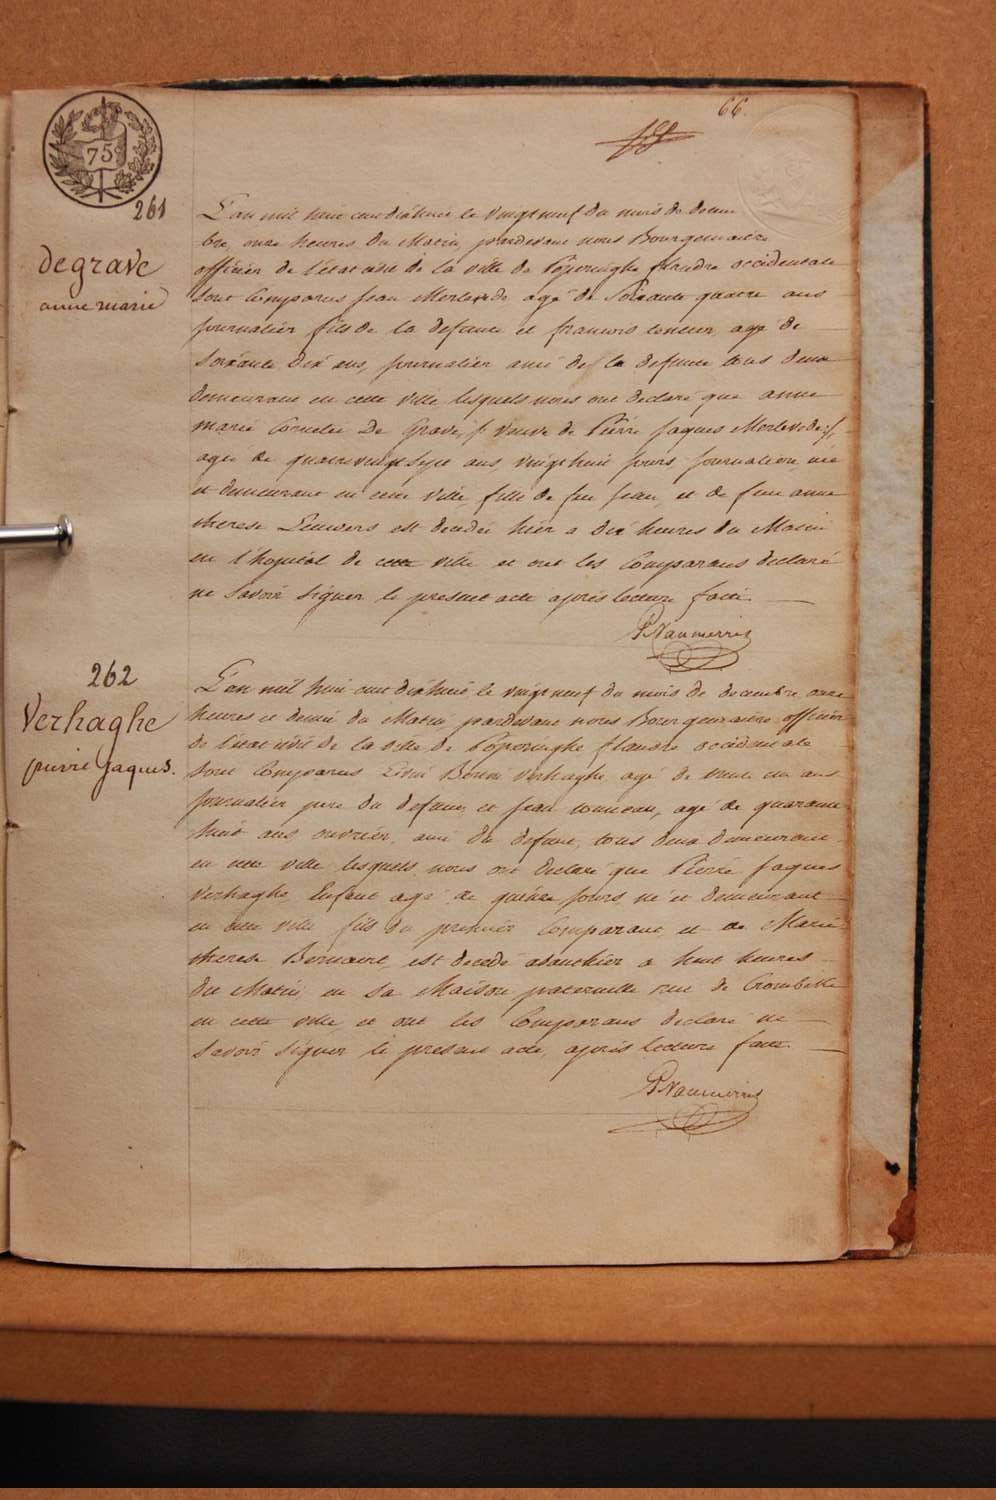 66.
75
261
degrave
anne marie
L'an mil huit cent dixhuit le vingt neuf du mois de decem
bre, onze heures du Matin, pardevant nous Bourguemaitre
officier de l'état civil de la ville de Poperinghe flandre occidentale
sont Comparus Jean Merlevede agé de Soixante quatre ans
journalier fils de la defunte et francois agé de
Soixante Dix ans, journalier ami de la defunte tous deux
demeurant en cette ville lesquels nous ont declaré que anne
marie De Grave, veuve de Pierre Jaques Merlevede
agée de quatrevingt sept ans, vingt huit jours journaliere née
et demeurant en cette ville, fille de feu Jean, et de feue anne
therese Leuwers est decedée hier a Dix heures du Matin
en l'hopital de cette ville et ont les Comparans declaré
ne savoir signer le present acte après lecture faite.
262
Verhaghe
pierre Jaques.
L'an mil huit cent dixhuit, le vingt neuf du mois de decembre onze
heures et demie du Matin pardevant nous Bourguemaitre officier
de l'état civil de la ville de Poperinghe flandre occidentale
sont Comparus Verhaghe, agé de trente un ans
journalier pere du defunt, et Jean agé de quarante
huit ans ouvrier, ami du defunt, tous deux demeurant
en cette ville lesquels nous ont declaré que Pierre Jaques
Verhaghe Enfant agé de quinze jours né et demeurant
en cette ville fils du premier Comparant et de Marie
therese est decedé avanthier a huit heures
du Matin, en sa Maison paternelle rue de
en cette ville, et ont les Comparans declaré ne
savoir signer le present acte, après lecture faite.